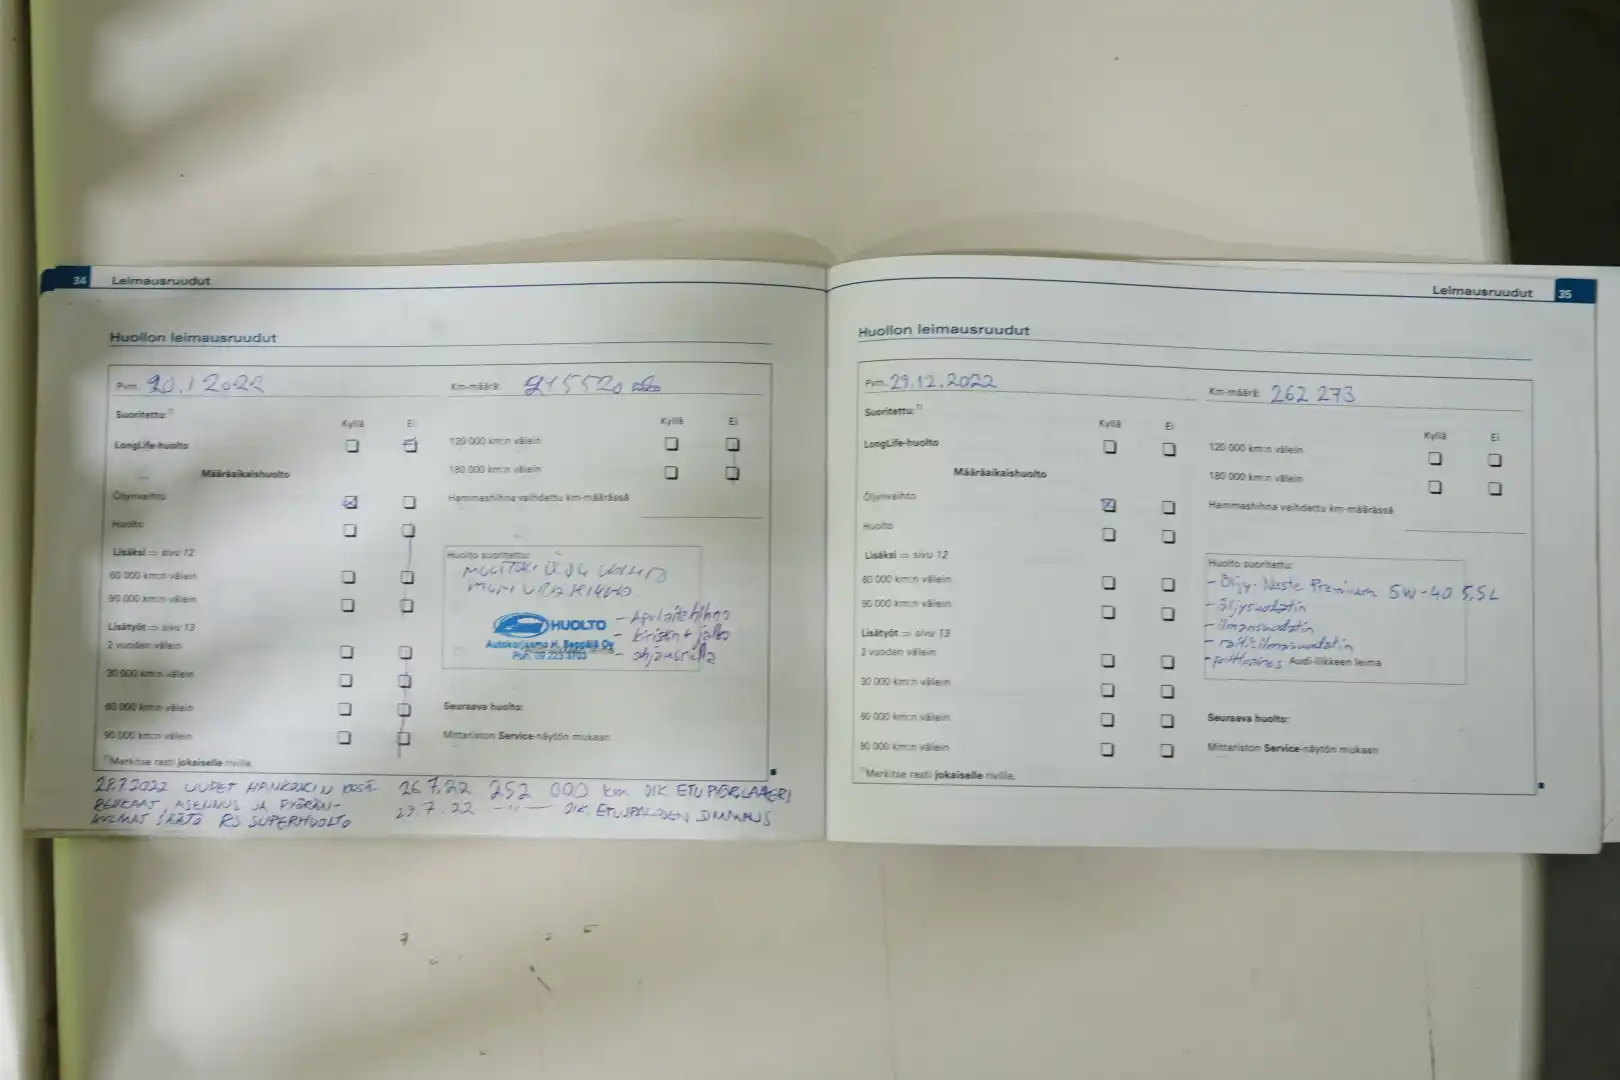 34 Leimausruudut
Huollon leimausruudut
Pvm. 20.1 2022
Km-määrä:
Suoritettu:¹⁾
Kyllä Ei
LongLife-huolto
Määräaikaishuolto
Öljynvaihto
Huolto
Lisäksi ⇒ sivu 12
60 000 km:n välein
90 000 km:n välein
Lisätyöt ⇒ sivu 13
2 vuoden välein
30 000 km:n välein
60 000 km:n välein
90 000 km:n välein
¹⁾Merkitse rasti jokaiselle riville.
Kyllä Ei
120 000 km:n välein
180 000 km:n välein
Hammashihna vaihdettu km-määrässä
Huolto suoritettu:
HUOLTO
Autokorjaamo H. Seppälä Oy
Puh. 09 223 3703
- Apulaitehihna
- kiristin + jalka
- ohjausrulla
Seuraava huolto:
Mittariston Service-näytön mukaan
28.7.2022 UUDET HANKOOKIN KESÄ-
RENKAAT, ASENNUS JA PYÖRÄN-
KULMAT SÄÄTÖ RS SUPERHUOLTO
26.7.22 252 000 km OIK ETUPYÖRLAAKERI
27.7.22 -"- OIK. ETUJPALOSEN
Leimausruudut 35
Huollon leimausruudut
Pvm. 29.12.2022
Km-määrä: 262 273
Suoritettu:¹⁾
Kyllä Ei
LongLife-huolto
Määräaikaishuolto
Öljynvaihto
Huolto
Lisäksi ⇒ sivu 12
60 000 km:n välein
90 000 km:n välein
Lisätyöt ⇒ sivu 13
2 vuoden välein
30 000 km:n välein
60 000 km:n välein
90 000 km:n välein
¹⁾Merkitse rasti jokaiselle riville.
Kyllä Ei
120 000 km:n välein
180 000 km:n välein
Hammashihna vaihdettu km-määrässä
Huolto suoritettu:
- Öljy: Neste Premium 5W-40 5,5L
- öljysuodatin
- ilmansuodatin
- raitisilmasuodatin
- polttoaines
Audi-liikkeen leima
Seuraava huolto:
Mittariston Service-näytön mukaan